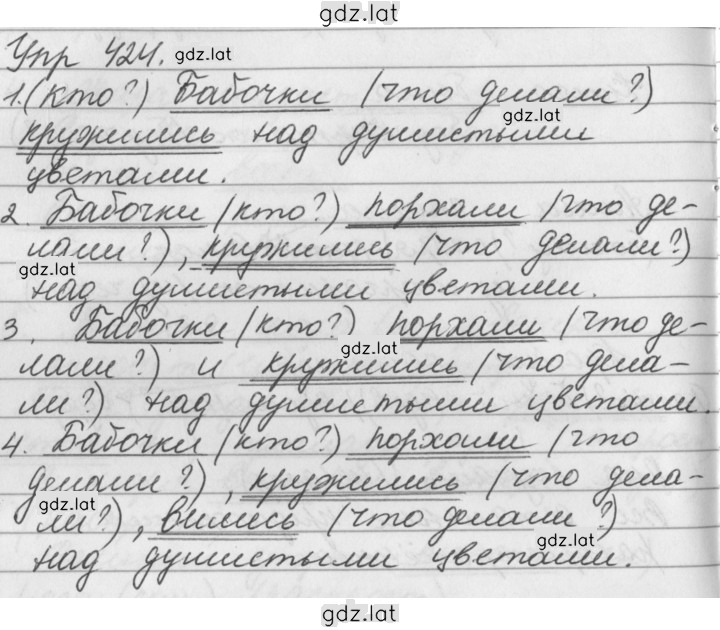 gdz.lat
Упр 424. gdz.lat
1. (кто?) Бабочки (что делали?)
gdz.lat
кружились над душистыми
цветами.
2. Бабочки (кто?) порхали (что де-
лали?), кружились (что делали?)
gdz.lat
над душистыми цветами.
3. Бабочки (кто?) порхали (что де-
gdz.lat
лали?) и кружились (что дела-
ли?) над душистыми цветами.
4. Бабочки (кто?) порхали (что
делали?), кружились (что дела-
gdz.lat
ли?), вились (что делали?)
gdz.lat
над душистыми цветами.
gdz.lat